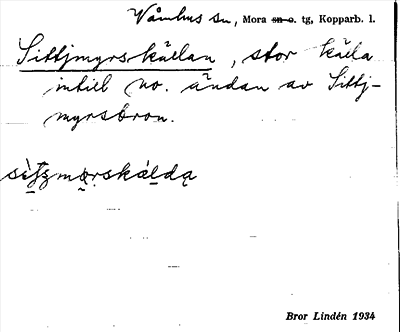 Våmhus sn, Mora sn o. tg, Kopparb. l.
Sittjmyrskällan, stor källa
intill no. ändan av Sittj-
myrsbron.
Bror Lindén 1934